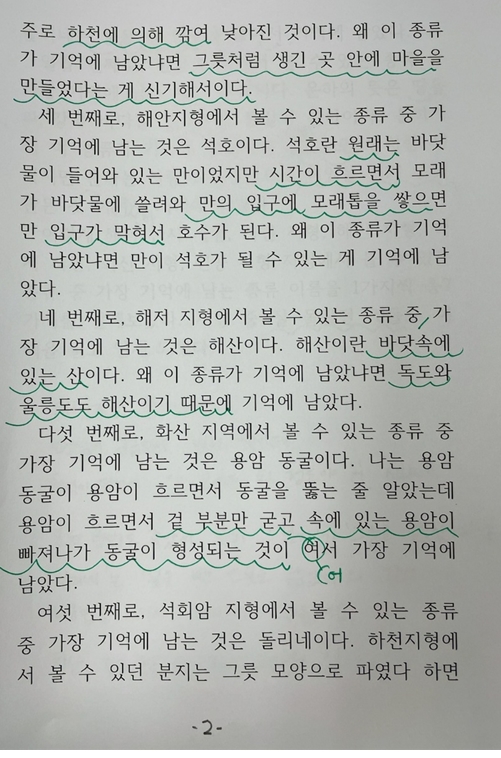 주로 하천에 의해 깎여 낮아진 것이다. 왜 이 종류
가 기억에 남았냐면 그릇처럼 생긴 곳 안에 마을을
만들었다는 게 신기해서이다.
세 번째로, 해안지형에서 볼 수 있는 종류 중 가
장 기억에 남는 것은 석호이다. 석호란 원래는 바닷
물이 들어와 있는 만이었지만 시간이 흐르면서 모래
가 바닷물에 쓸려와 만의 입구에 모래톱을 쌓으면
만 입구가 막혀서 호수가 된다. 왜 이 종류가 기억
에 남았냐면 만이 석호가 될 수 있는 게 기억에 남
았다.
네 번째로, 해저 지형에서 볼 수 있는 종류 중 가
장 기억에 남는 것은 해산이다. 해산이란 바닷속에
있는 산이다. 왜 이 종류가 기억에 남았냐면 독도와
울릉도도 해산이기 때문에 기억에 남았다.
다섯 번째로, 화산 지역에서 볼 수 있는 종류 중
가장 기억에 남는 것은 용암 동굴이다. 나는 용암
동굴이 용암이 흐르면서 동굴을 뚫는 줄 알았는데
용암이 흐르면서 겉 부분만 굳고 속에 있는 용암이
빠져나가 동굴이 형성되는 것이 여서 가장 기억에
어
남았다.
여섯 번째로, 석회암 지형에서 볼 수 있는 종류
중 가장 기억에 남는 것은 돌리네이다. 하천지형에
서 볼 수 있던 분지는 그릇 모양으로 파였다 하면
-2-